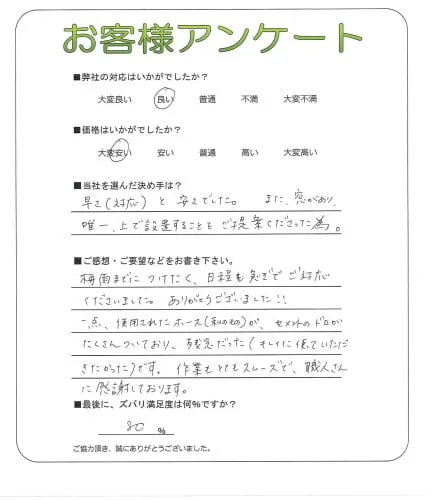 お客様アンケート
■弊社の対応はいかがでしたか？
大変良い 良い 普通 不満 大変不満
■価格はいかがでしたか？
大変安い 安い 普通 高い 大変高い
■当社を選んだ決め手は？
早さ(対応)と安さでした。 また、窓があり、
唯一、上で設置することをご提案くださった為。
■ご感想・ご要望などをお書き下さい。
梅雨までにつけたく、日程も急ぎでご対応
くださいました。ありがとうございました!!
一点、使用されたホース(私のもの)が、セメントのドロが
たくさんついており、残念だった(キレイに使っていただ
きたかった)です。作業もとてもスムーズで、職人さん
に感謝しております。
■最後に、ズバリ満足度は何%ですか？
80 %
ご協力頂き、誠にありがとうございました。